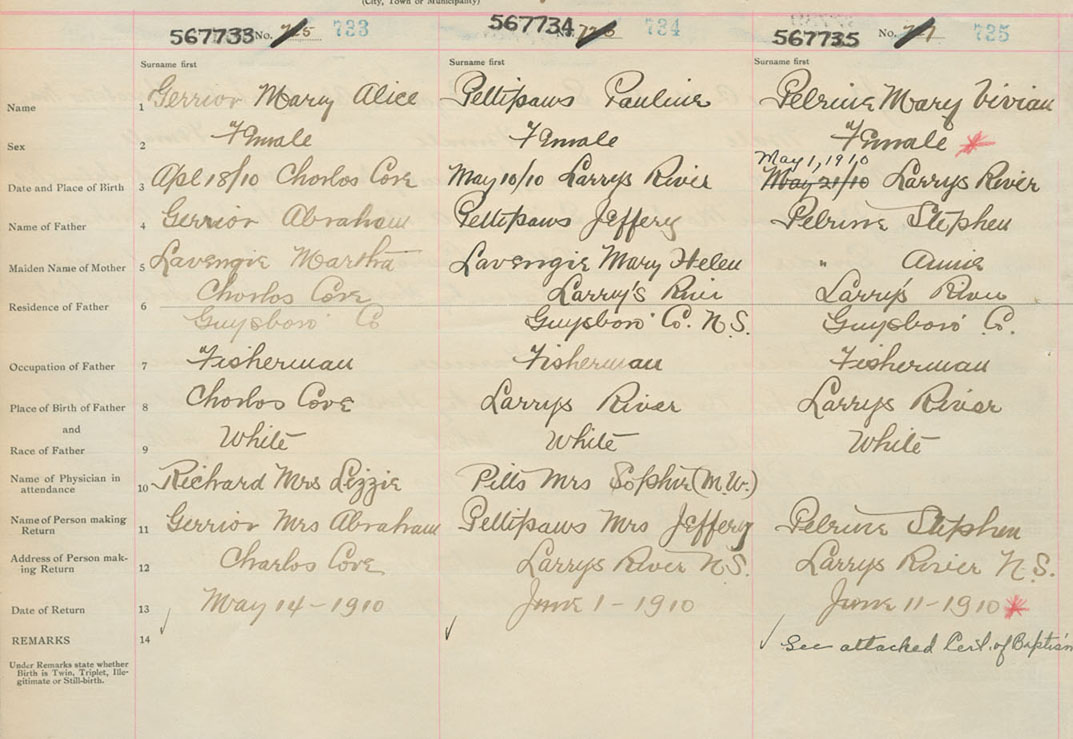 (City, Town or Municipality)
567733 No. 733
567734 No. 734
567735 No. 735
Surname first
Surname first
Surname first
Name 1 Gerrior Mary Alice Pettipaws Pauline Pelrine Mary Vivian
Sex 2 Female Female Female
May 1, 1910
Date and Place of Birth 3 Apl 18/10 Charlos Cove May 10/10 Larrys River May 21/10 Larrys River
Name of Father 4 Gerrior Abraham Pettipaws Jeffery Pelrine Stephen
Maiden Name of Mother 5 Lavengie Martha Lavengie Mary Helen " Annie
Residence of Father 6 Charlos Cove Larry's River Larry's River
Guysboro' Co Guysboro' Co. N.S. Guysboro' Co.
Occupation of Father 7 Fisherman Fisherman Fisherman
Place of Birth of Father 8 Charlos Cove Larrys River Larrys River
and
Race of Father 9 White White White
Name of Physician in
attendance 10 Richard Mrs Lizzie Pitts Mrs Sophie (M.W.)
Name of Person making
Return 11 Gerrior Mrs Abraham Pettipaws Mrs Jeffery Pelrine Stephen
Address of Person mak-
ing Return 12 Charlos Cove Larrys River N.S. Larrys River N.S.
Date of Return 13 May 14 - 1910 June 1 - 1910 June 11 - 1910
REMARKS 14 See attached Cert. of Baptism
Under Remarks state whether
Birth is Twin, Triplet, Ille-
gitimate or Still-birth.